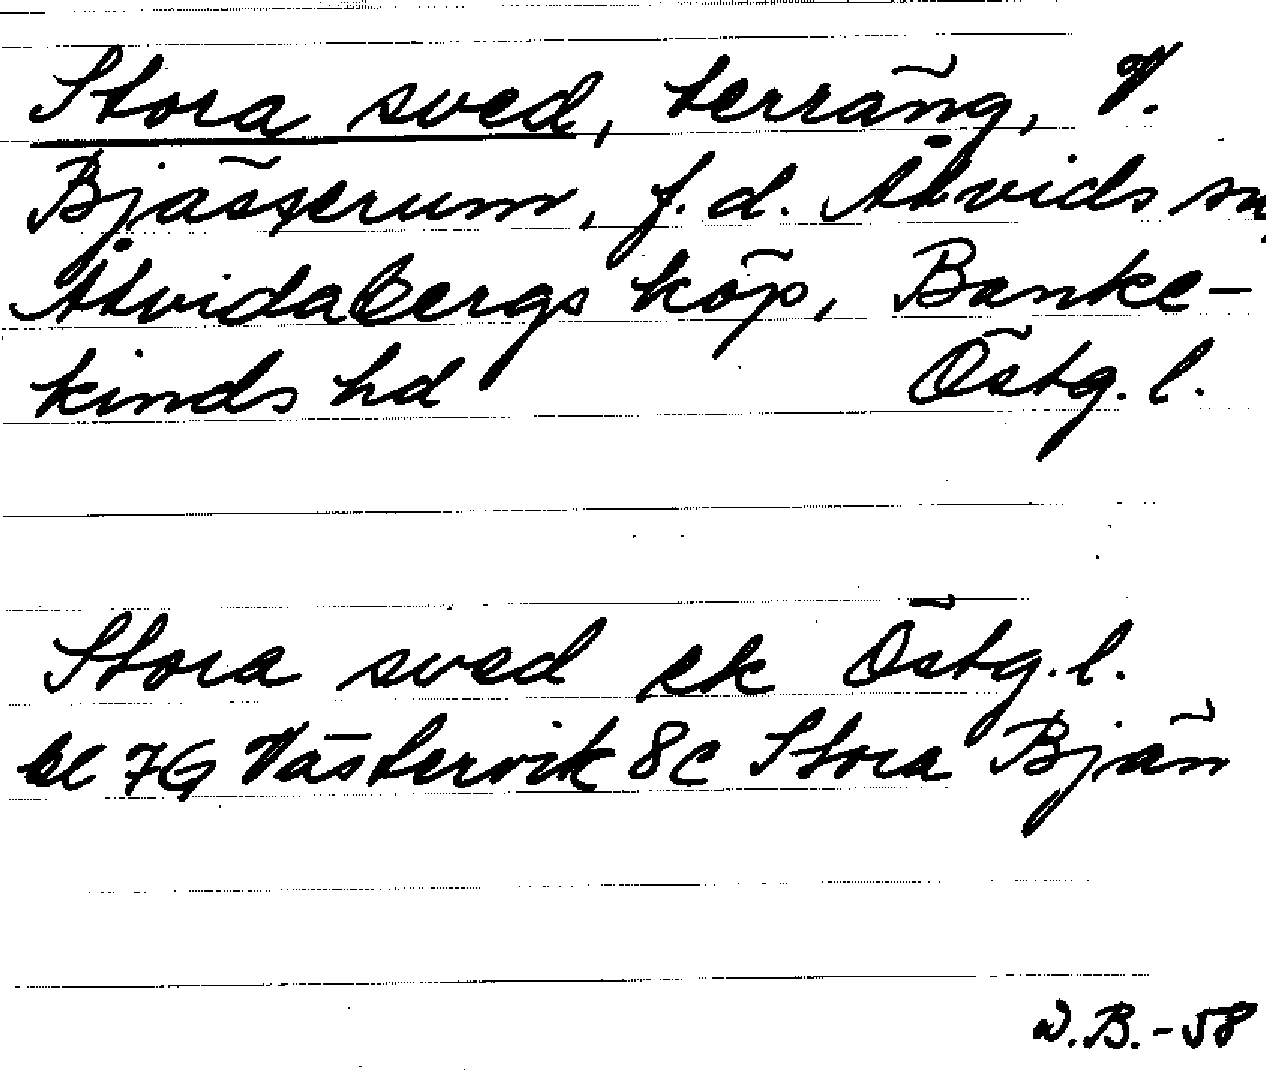 Stora sved, terräng, V.
Bjässerum, f.d. Åtvids sn,
Åtvidabergs köp, Banke-
kinds hd Östg. l.
Stora sved ek Östg. l.
bl 7G Västervik 8c Stora Bjän
W.B.-58